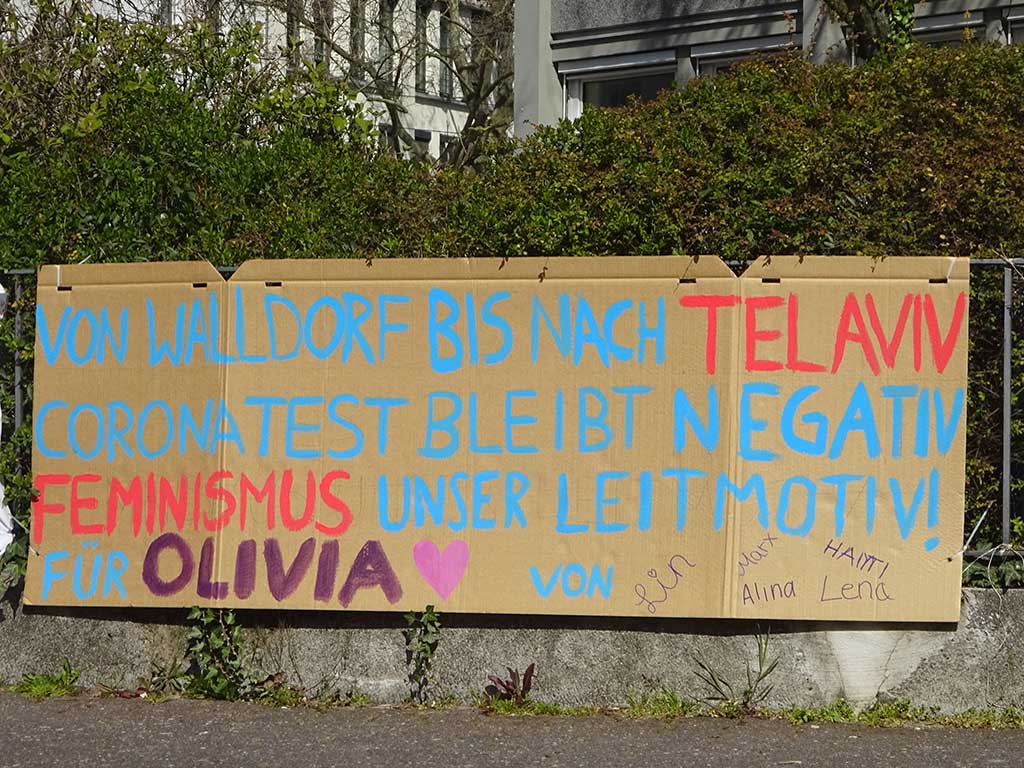 VON WALLDORF BIS NACH TEL AVIV
CORONATEST BLEIBT NEGATIV
FEMINISMUS UNSER LEITMOTIV!
FÜR OLIVIA ♥ VON Lin Marx HAITI
Alina Lena